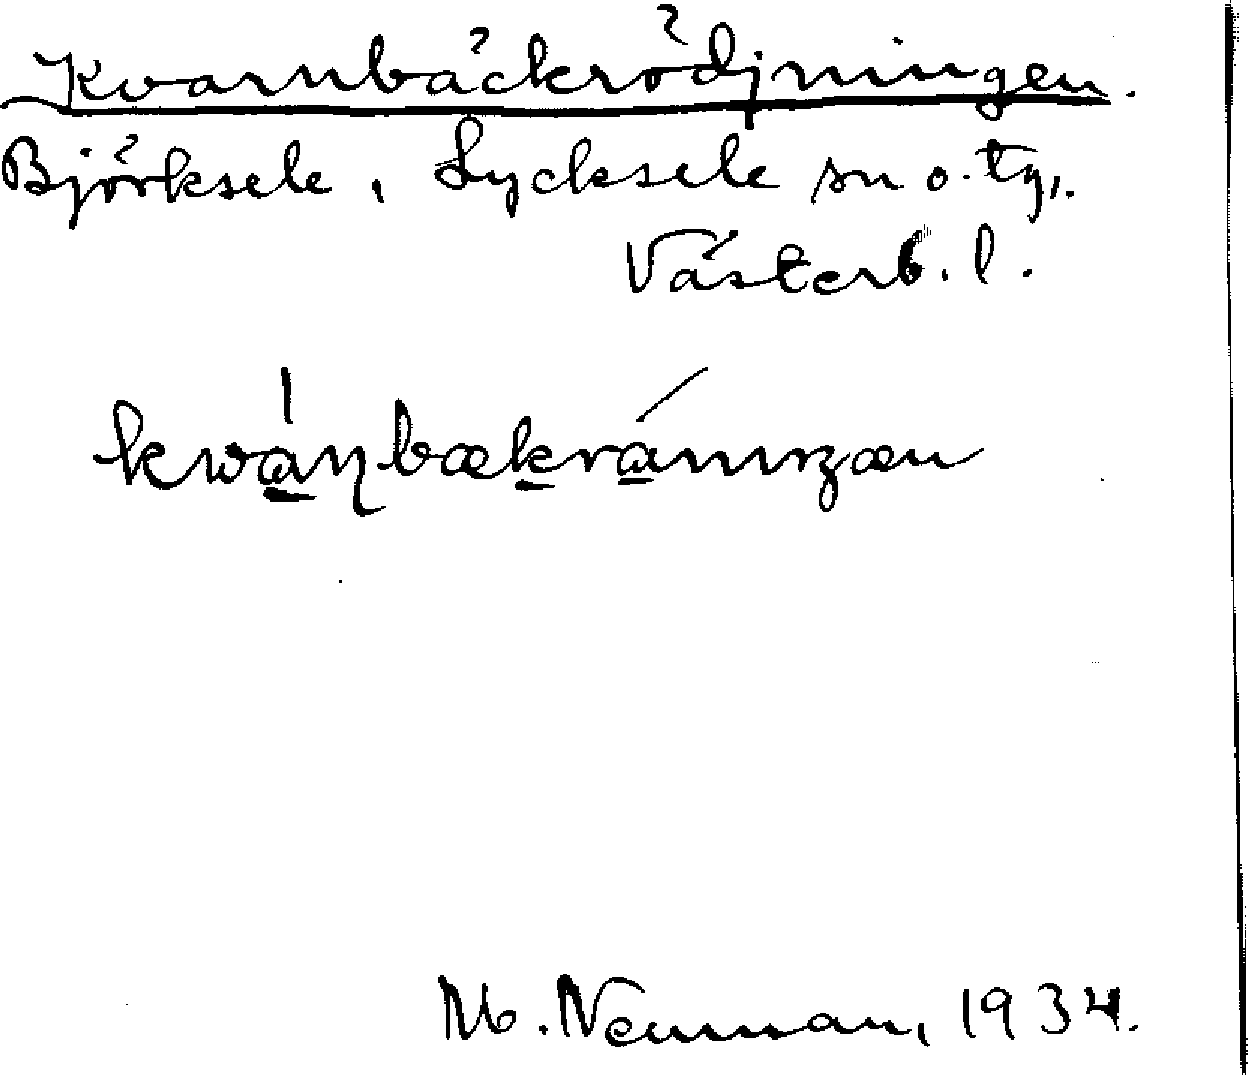 Kvarnbäckrödjningen.
Björksele, Lycksele sn o. tg,.
Västerb. l.
M. Neuman, 1934.